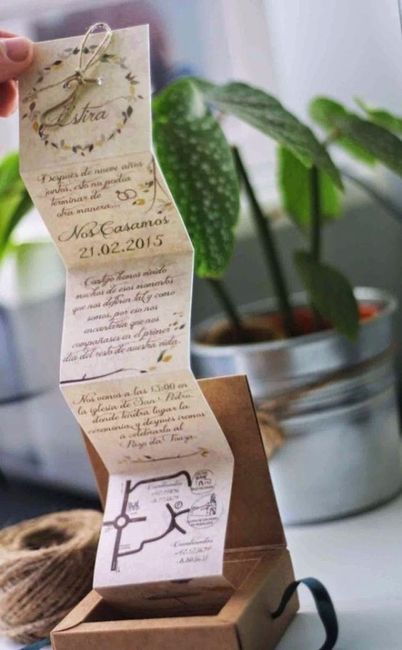 Estira
Después de nueve años
juntos, esto no podía
terminar de
otra manera...
Nos Casamos
21.02.2015
hemos vivido
muchos de esos momentos
que nos definen tal y como
somos, por eso nos
encantaría que nos
acompañaseis en el primer
día del resto de nuestra vida.
Nos vemos a las 13:00 en
la iglesia de San Pedro,
donde tendrá lugar la
ceremonia, y después iremos
a celebrarlo al
Pazo da Touza.
Coordenadas
Coordenadas